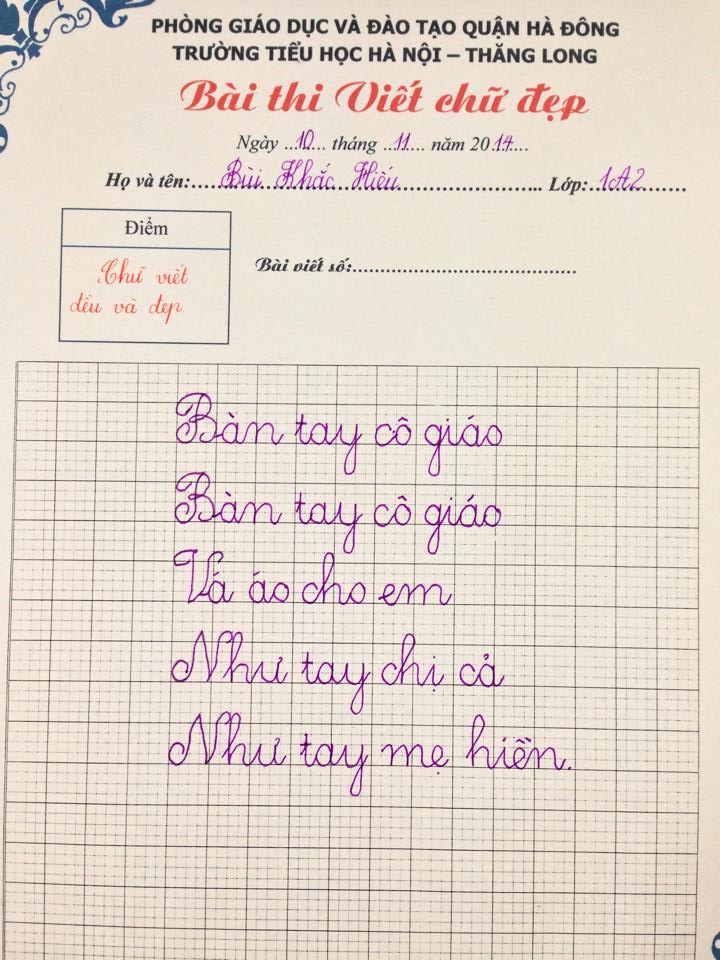 PHÒNG GIÁO DỤC VÀ ĐÀO TẠO QUẬN HÀ ĐÔNG
TRƯỜNG TIỂU HỌC HÀ NỘI – THĂNG LONG
Bài thi Viết chữ đẹp
Ngày ..10... tháng ..11.... năm 2014....
Họ và tên:.....Bùi Khắc Hiếu........................... Lớp:..1A2.......
Điểm
Chữ viết
đều và đẹp
Bài viết số:............................................
Bàn tay cô giáo
Bàn tay cô giáo
Vá áo cho em
Như tay chị cả
Như tay mẹ hiền.